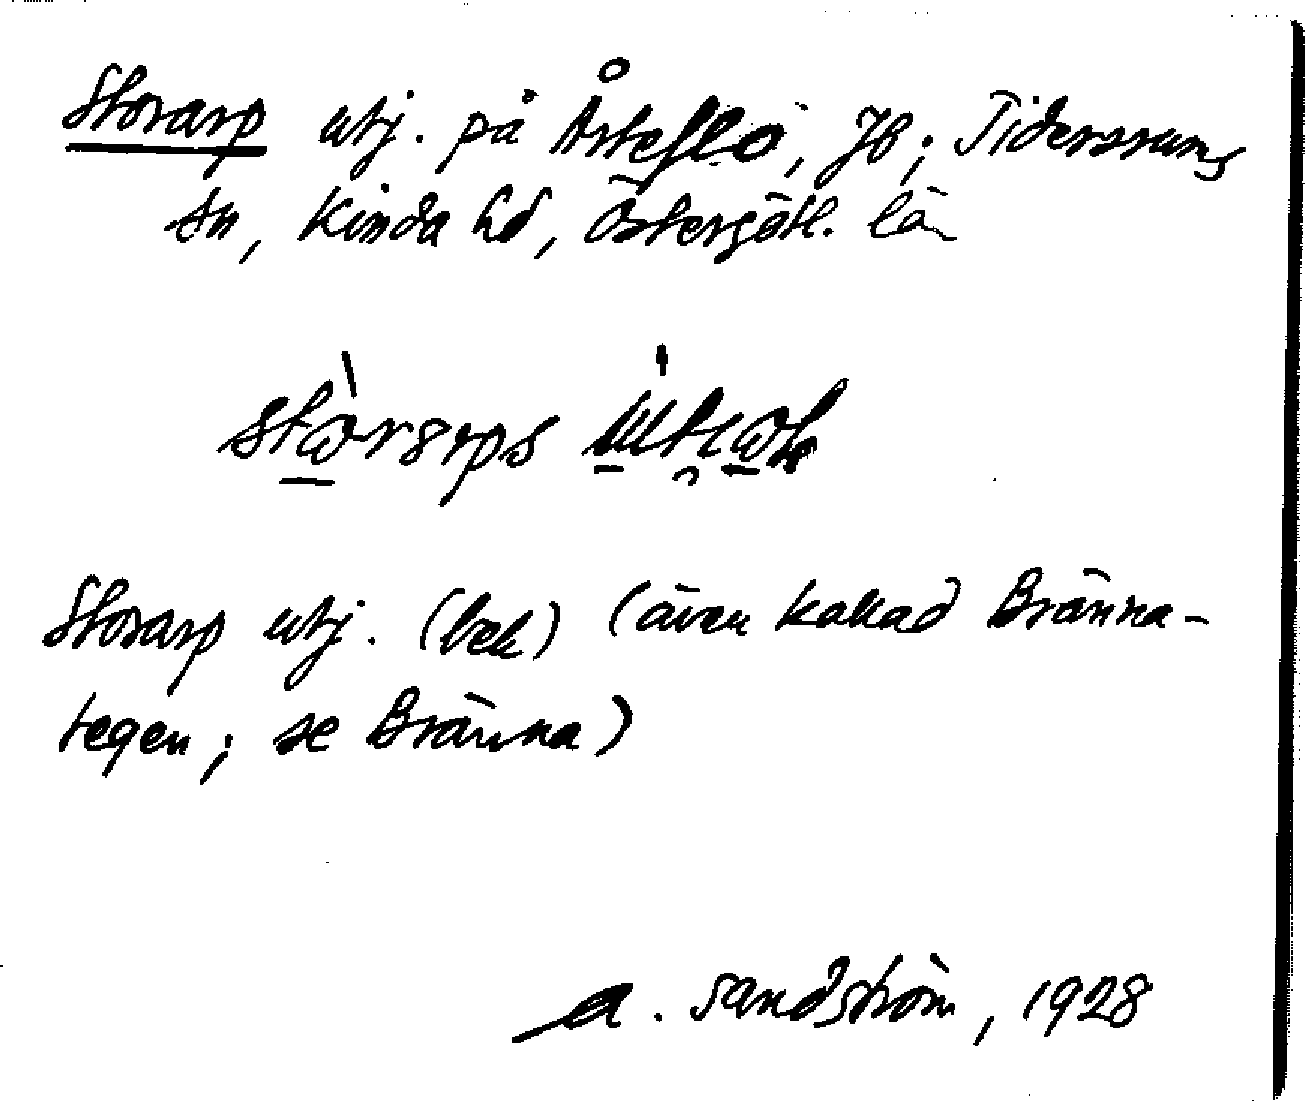 Storarp utj. på Årteflo, Jb; Tidersrums
sn, Kinda hd, Östergötl. län
Storarp utj. (bek) (även kallad Bränna-
tegen; se Bränna)
A. Sandström, 1928